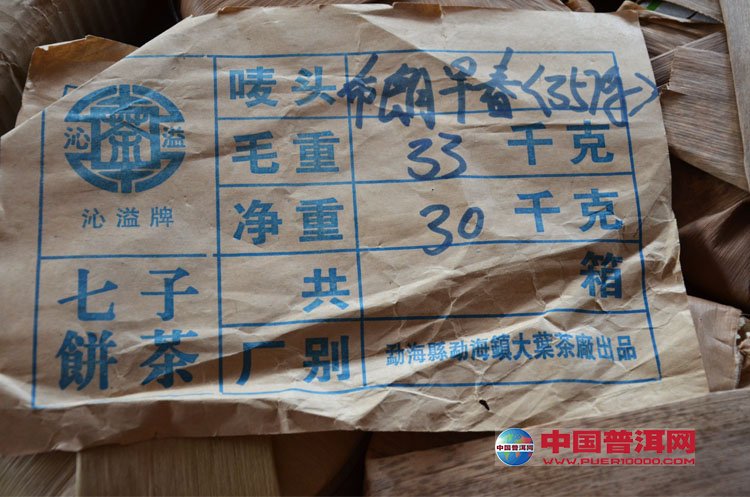 唛头 布朗早春<357克>
茶
沁 溢
毛重 33 千克
沁溢牌
净重 30 千克
七子
餅茶
共 箱
厂别 勐海縣勐海鎮大葉茶廠出品
中国普洱网
WWW.PUER10000.COM